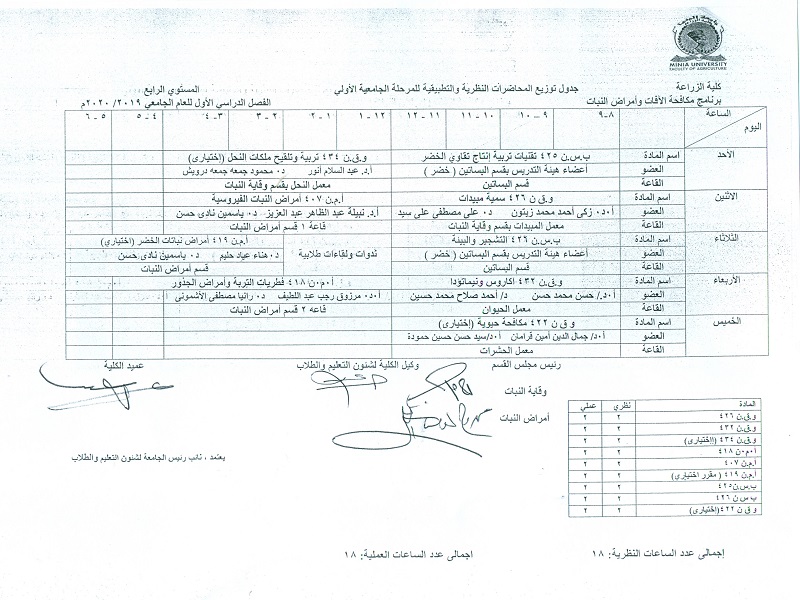 MINIA UNIVERSITY
FACULTY OF AGRICULTURE
كلية الزراعة
جدول توزيع المحاضرات النظرية والتطبيقية للمرحلة الجامعية الأولي
المستوي الرابع
برنامج مكافحة الأفات وأمراض النبات
الفصل الدراسي الأول للعام الجامعي ٢٠١٩/ ٢٠٢٠م
الساعة
اليوم
٨-٩ ٩ - ١٠ ١٠ - ١١ ١١ - ١٢ ١٢ - ١ ١ - ٢ ٢ - ٣ ٣ - ٤ ٤ - ٥ ٥ - ٦
الأحد اسم المادة ب.س.ن ٤٢٥ تقنيات تربية إنتاج تقاوي الخضر و.ق.ن ٤٣٤ تربية وتلقيح ملكات النحل (اختيارى)
العضو أعضاء هيئة التدريس بقسم البساتين ( خضر ) أ.د. عبد السلام أنور د٠ محمود جمعه جمعه درويش
القاعة قسم البساتين معمل النحل بقسم وقاية النبات
الاثنين اسم المادة و.ق.ن ٤٢٦ سمية مبيدات أ.م.ن ٤٠٧ أمراض النبات الفيروسية
العضو أ٠د٠ زكى أحمد محمد زيتون د٠ على مصطفى على سيد أ.د. نبيلة عبد الظاهر عبد العزيز د٠ ياسمين نادى حسن
القاعة معمل المبيدات بقسم وقاية النبات قاعة ١ قسم أمراض النبات
الثلاثاء اسم المادة ب.س.ن ٤٢٦ التشجير والبيئة ندوات ولقاءات طلابية أ.م.ن ٤١٩ أمراض نباتات الخضر (اختياري)
العضو أعضاء هيئة التدريس بقسم البساتين ( خضر ) د٠ هناء عياد حليم د٠ ياسمين نادى حسن
القاعة قسم البساتين قسم أمراض النبات
الأربعاء اسم المادة و.ق.ن ٤٣٢ اكاروس ونيماتؤدا أ٠م٠ن ٤١٨ فطريات التربة وأمراض الجذور
العضو أ٠د٠/ حسن محمد حسن د/ أحمد صلاح محمد حسين أ٠د٠ مرزوق رجب عبد اللطيف د٠ رانيا مصطفى الأشمونى
القاعة معمل الحيوان قاعه ٢ قسم أمراض النبات
الخميس اسم المادة و ق ن ٤٢٢ مكافحة حيوية (إختيارى)
العضو أ٠د/ جمال الدين أمين فرامان أ٠د/سيد حسن حسين حمودة
القاعة معمل الحشرات
رئيس مجلس القسم وكيل الكلية لشئون التعليم والطلاب عميد الكلية
وقاية النبات
أمراض النبات
المادة نظري عملي
و.ق.ن ٤٢٦ ٢ ٢
و.ق.ن ٤٣٢ ٢ ٢
و.ق.ن ٤٣٤ (اإختيارى) ٢ ٢
أ٠م٠ن ٤١٨ ٢ ٢
أ.م.ن ٤٠٧ ٢ ٢
أ.م.ن ٤١٩ ( مقرر اختياري) ٢ ٢
ب.س.ن٤٢٥ ٢ ٢
ب س ن ٤٢٦ ٢ ٢
و ق ن ٤٢٢(إختيارى) ٢ ٢
يعتمد ، نائب رئيس الجامعة لشئون التعليم والطلاب
إجمالى عدد الساعات النظرية: ١٨ اجمالى عدد الساعات العملية: ١٨